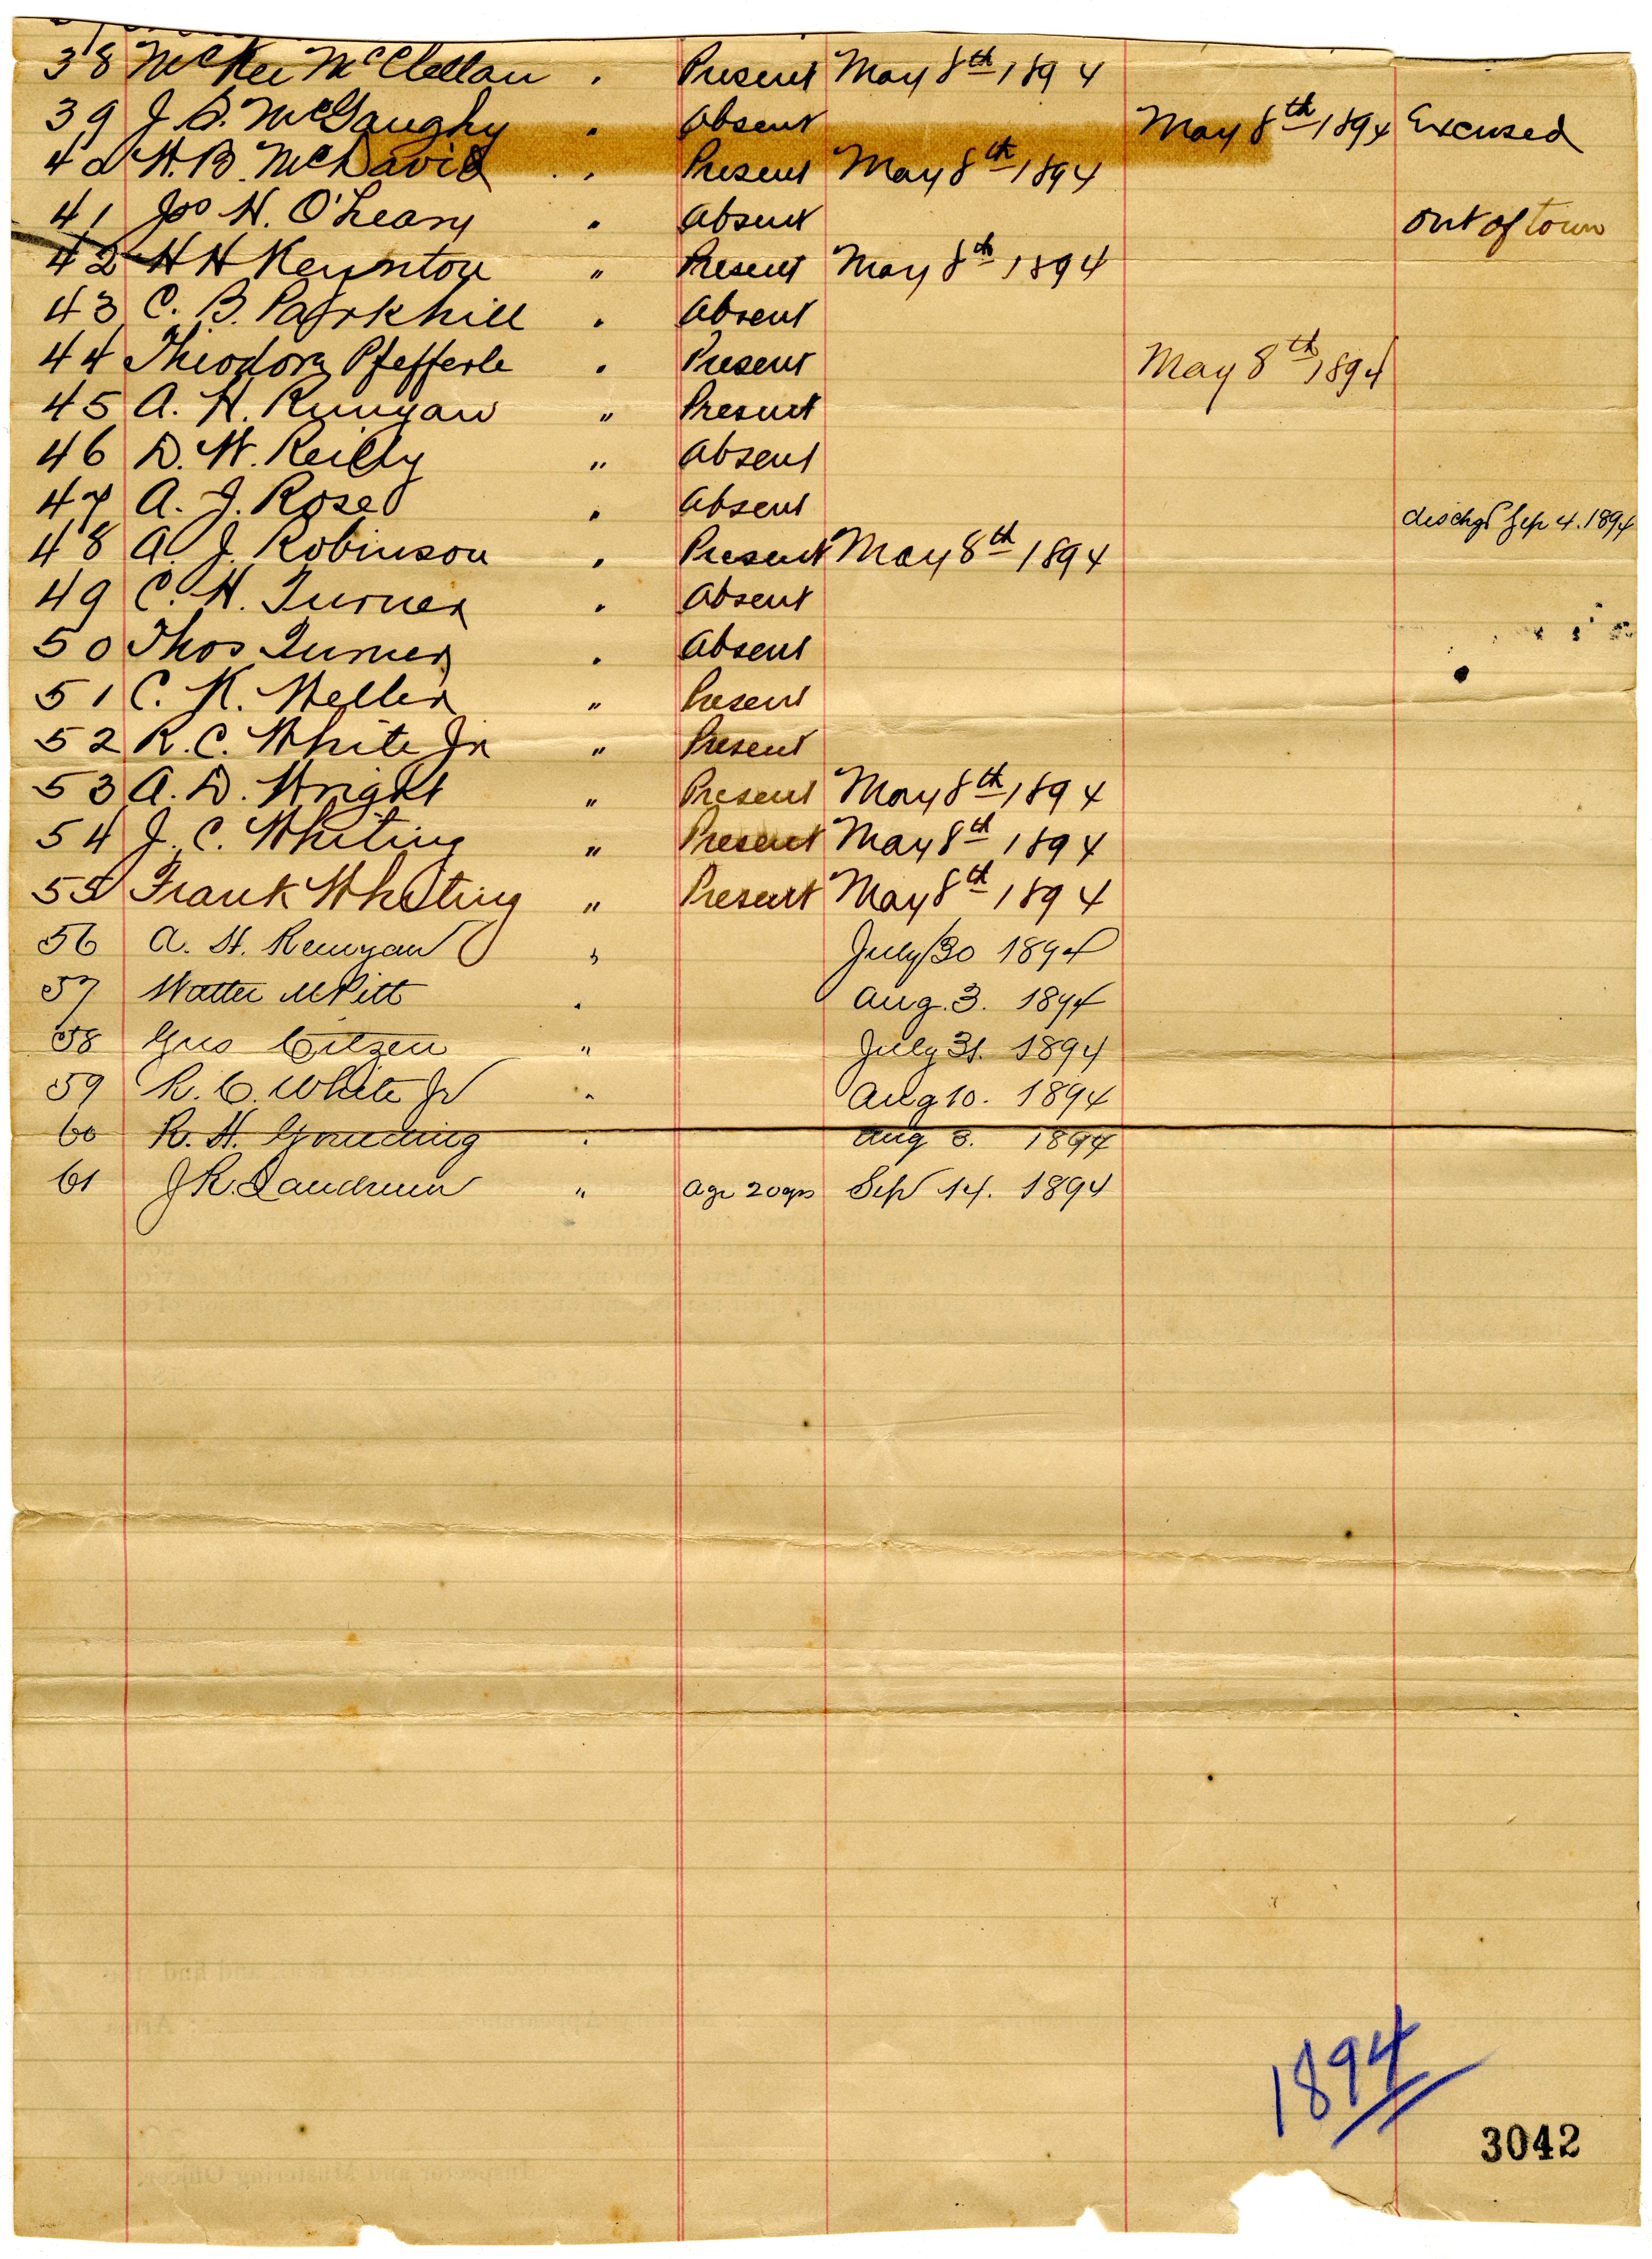 38 McKee McClellan . Present May 8th 1894
39 J. B. McGaughy . Absent May 8th 1894 Excused
40 H. B. McDavid . . Present May 8th 1894
41 Jno H. O'Leary . Absent out of town
42 H H Kennton " Present May 8th 1894
43 C. B. Parkhill . Absent
44 Theodore Pfefferle . Present May 8th 1894
45 A. H. Runyan " Present
46 D. W. Reilly " Absent
47 A. J. Rose . Absent dischgd Sep 4. 1894
48 A. J. Robinson . Present May 8th 1894
49 C. H. Turner . Absent
50 Thos Turner . Absent
51 C. K. Weller " Present
52 R. C. White Jr " Present
53 A. D. Wright " Present May 8th 1894
54 J. C. Whiting " Present May 8th 1894
55 Frank Whiting " Present May 8th 1894
56 A. H. Runyan " July 30 1894
57 Walter McPitt . Aug. 3. 1894
58 Gus " July 31. 1894
59 R. C. White Jr " Aug 10. 1894
60 R. H. . Aug 3. 1894
61 J R. Landrum " age 20 yrs Sep 14. 1894
1894
3042